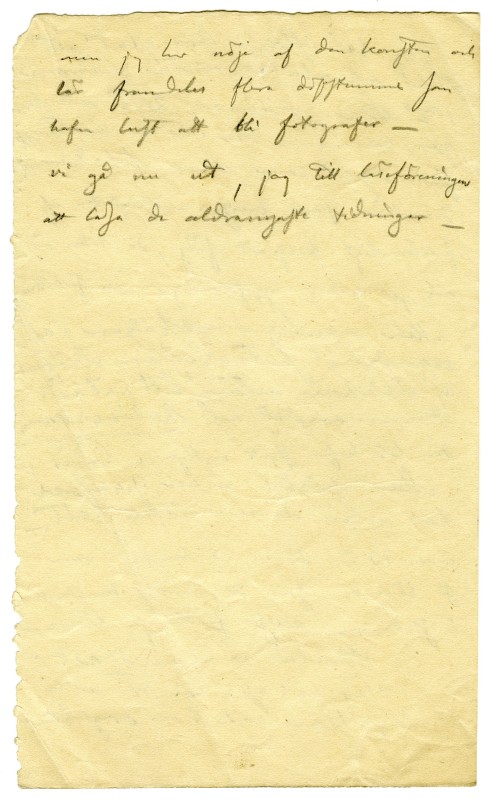 men jag har nöje af den konsten och
lär framdeles flera döfstumma som
hafva lust att bli fotografer —
vi gå nu ut, jag till läseföreningen
att läsa de aldranyaste tidningar —